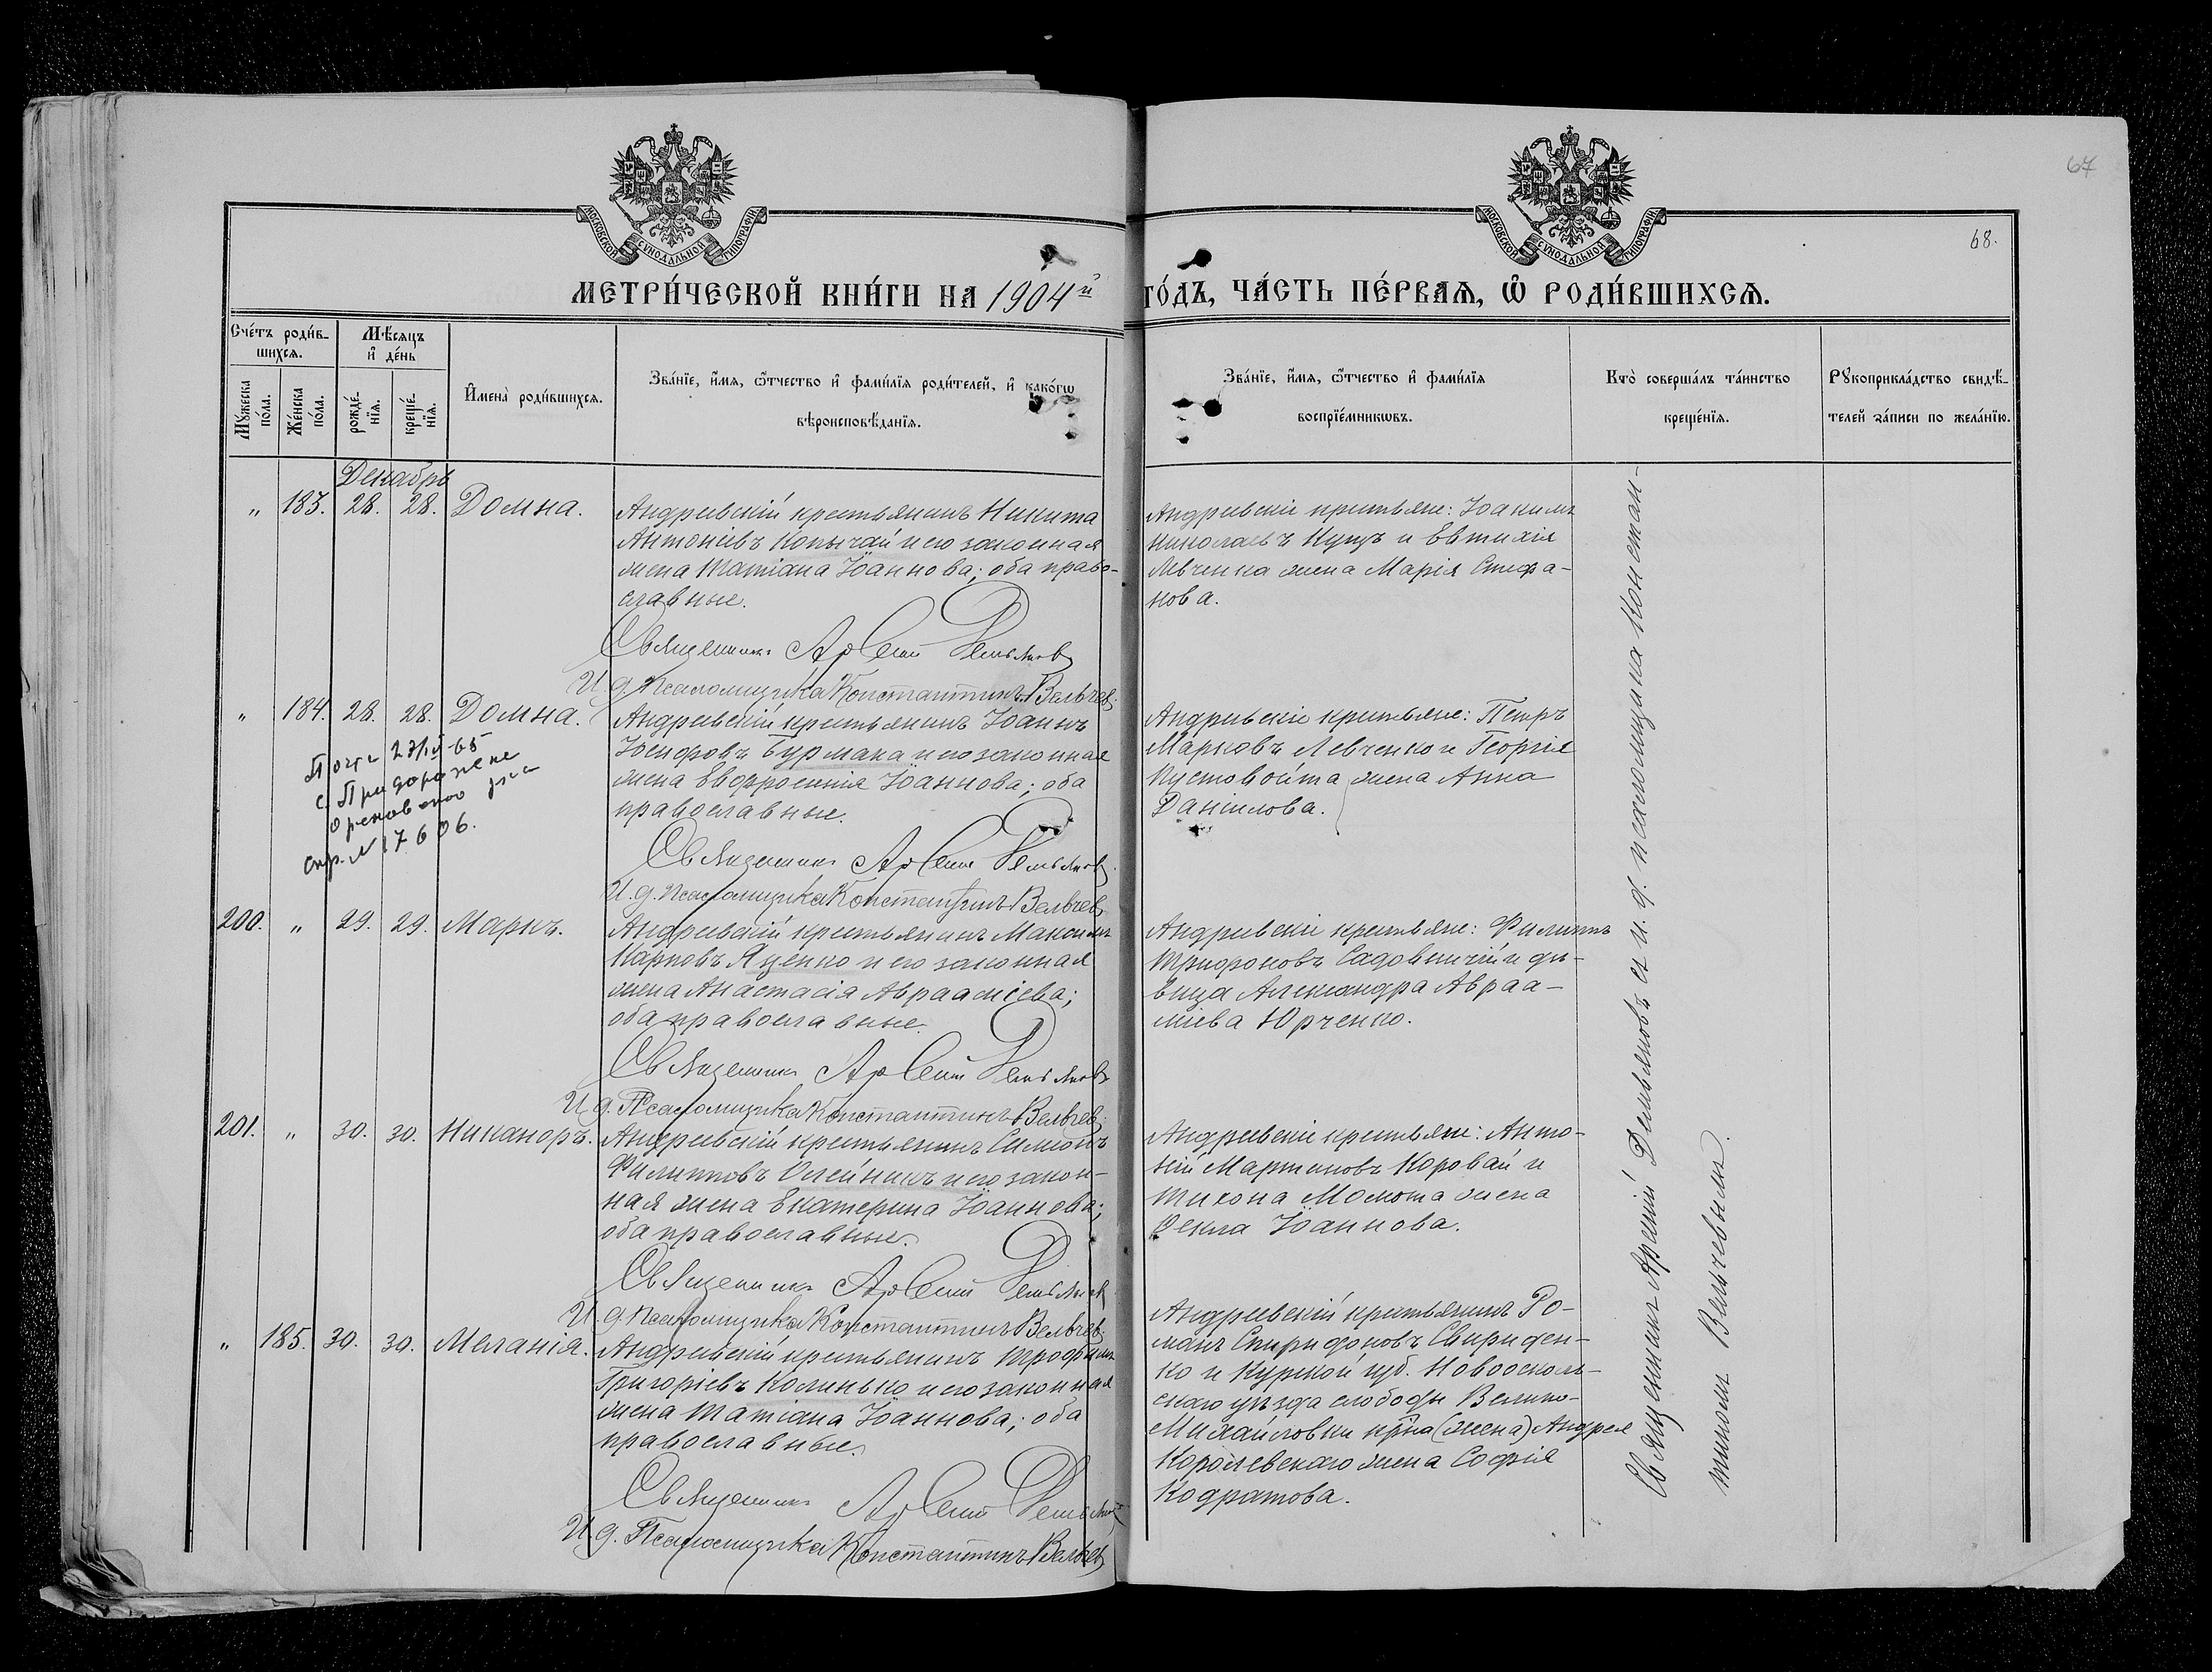 67
МОСКОВСКОЙ СѴНОДАЛЬНОЙ ТИПОГРАФІИ
МОСКОВСКОЙ СѴНОДАЛЬНОЙ ТИПОГРАФІИ
68.
МЕТРИ́ЧЕСКОЙ КНИ́ГИ НА 1904й ГО́ДЪ, ЧА́СТЬ ПЕ́РВАѦ, Ѡ РОДИ́ВШИХСѦ.
Сче́тъ роди́в-
шихсѧ.
Мѣ́сѧцъ
и҆ де́нь
Мꙋ́жеска по́ла.
Же́нска по́ла.
рожде́-нїѧ.
креще́-нїѧ.
И҆мена̀ роди́вшихсѧ.
Зва́нїе, и҆́мѧ, ѻ҆́тчество и҆ фами́лїѧ роди́телей, и҆ како́гѡ
вѣроисповѣ́данїѧ.
Зва́нїе, и҆́мѧ, ѻ҆́тчество и҆ фами́лїѧ
воспрїе́мникѡвъ.
Кто̀ соверша́лъ та́инство
креще́нїѧ.
Рꙋкоприкла́дство свидѣ́-
телей за́писи по жела́нїю.
Декабрь
" 183. 28. 28. Домна.
Андреевскій крестьянинъ Никита
Антоніевъ Копычай и его законная
жена Татіана Іоаннова; оба право-
славные.
Священникъ Арсеній Демьяновъ
И. д. Псаломщика Константинъ Вельчевъ.
Андреевскіе крестьяне: Іоакимъ
Николаевъ Куцъ и Евтихія
Левченка жена Марія Стефа-
нова.
" 184. 28. 28. Домна.
с. Придорожне
спр. N 17606.
Андреевскій крестьянинъ Іоаннъ
Бурмака и его законная
жена Евфросинія Іоаннова; оба
православные.
Священникъ Арсеній Демьяновъ.
И. д. псаломщика Константинъ Вельчевъ
Андреевскіе крестьяне: Петръ
Марковъ Левченко и Георгія
Пустовойта жена Анна
Даніилова.
200. " 29. 29. Маркъ.
Андреевскій крестьянинъ Максимъ
Карповъ Яценко и его законная
жена Анастасія Авраамієва;
оба православные.
Священникъ Арсеній Демьяновъ
И. д. Псаломщика Константинъ Вельчевъ.
Андреевскіе крестьяне: Филиппъ
Трифоновъ Садовничій и дѣ-
вица Александра Авраа-
міева Юрченко.
201. " 30. 30. Никаноръ.
Андреевскій крестьянинъ Симеонъ
Филипповъ Олейникъ и его закон-
ная жена Екатерина Іоаннова;
оба православные.
Священникъ Арсеній Демьяновъ
И. д. Псаломщика Константинъ Вельчевъ.
Андреевскіе крестьяне: Анто-
ній Мартиновъ Коровай и
Тихона Момота жена
Фекла Іоаннова.
" 185. 30. 30. Меланія.
Андреевскій крестьянинъ Трофимъ
Григоріевъ Колинько и его законная
жена Татіана Іоаннова; оба
православные.
Священникъ Арсеній Демьяновъ
И. д. Псаломщика Константинъ Вельчевъ
Андреевскій крестьянинъ Ро-
манъ Спиридоновъ Свириден-
ко и Курской губ. Новоосколь-
скаго уѣзда слободы Велико-
Михайловки кр-на (жена) Андрея
Королевскаго жена Софія
Кодратова.
Священникъ Арсеній Демьяновъ съ и. д. псаломщика Констан-
тиномъ Вельчевымъ.